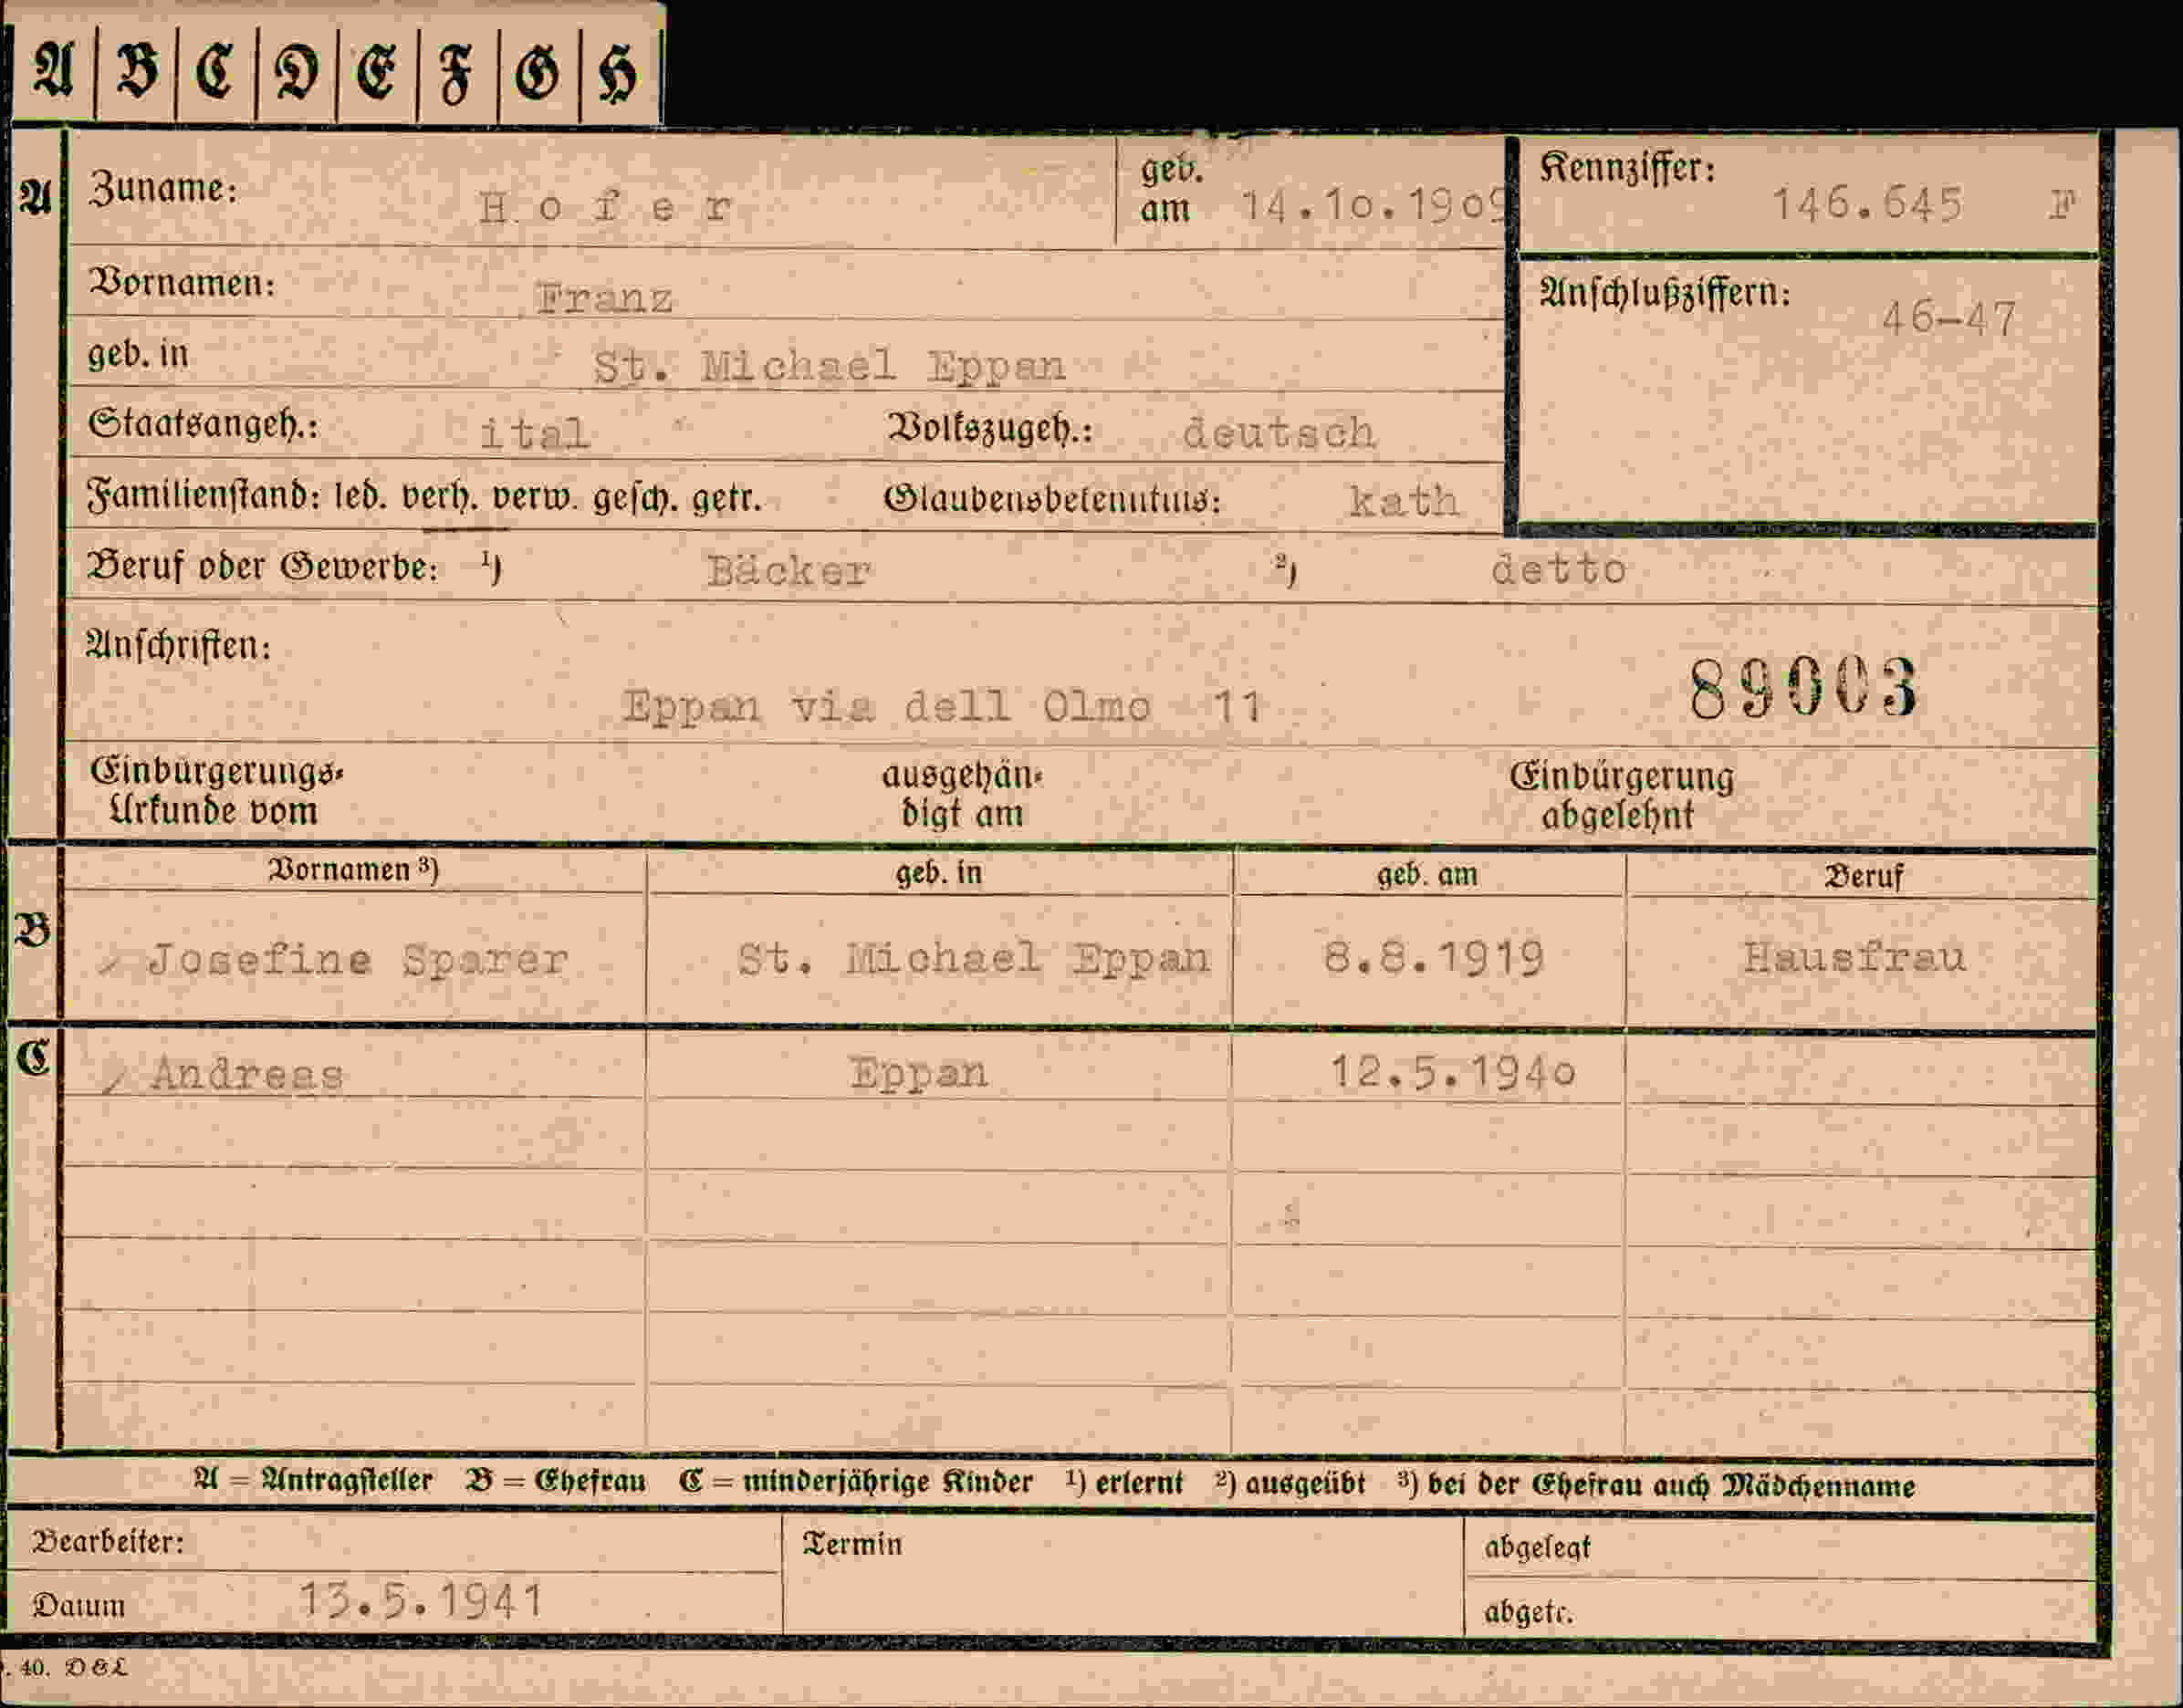 A B C D E F G H
A Zuname: Hofer geb. am 14.10.1909 Kennziffer: 146.645 F
Vornamen: Franz Anschlußziffern: 46-47
geb. in St. Michael Eppan
Staatsangeh.: ital Volkszugeh.: deutsch
Familienstand: led. verh. verw. gesch. getr. Glaubensbekenntnis: kath
Beruf oder Gewerbe: ¹) Bäcker ²) detto
Anschriften:
Eppan via dell Olmo 11 89003
Einbürgerungs- ausgehän- Einbürgerung
Urkunde vom digt am abgelehnt
Vornamen ³) geb. in geb. am Beruf
B Josefine Sparer St. Michael Eppan 8.8.1919 Hausfrau
C Andreas Eppan 12.5.1940
A = Antragsteller B = Ehefrau C = minderjährige Kinder ¹) erlernt ²) ausgeübt ³) bei der Ehefrau auch Mädchenname
Bearbeiter: Termin abgelegt
Datum 13.5.1941 abgetr.
. 40. D & L